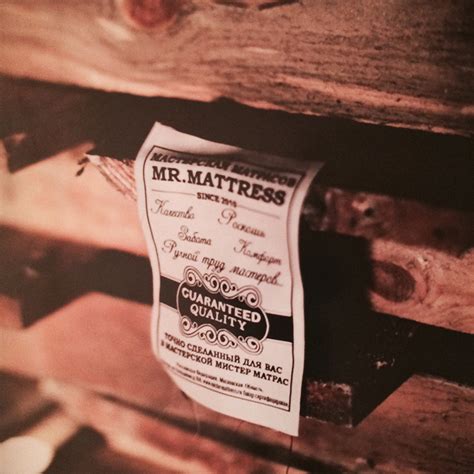 МАСТЕРСКАЯ МАТРАСОВ
MR.MATTRESS
SINCE 2010
Качество Роскошь
Забота Комфорт
Ручной труд мастеров...
GUARANTEED
QUALITY
ТОЧНО СДЕЛАННЫЙ ДЛЯ ВАС
В МАСТЕРСКОЙ МИСТЕР МАТРАС
Российская Федерация, Московская Область,